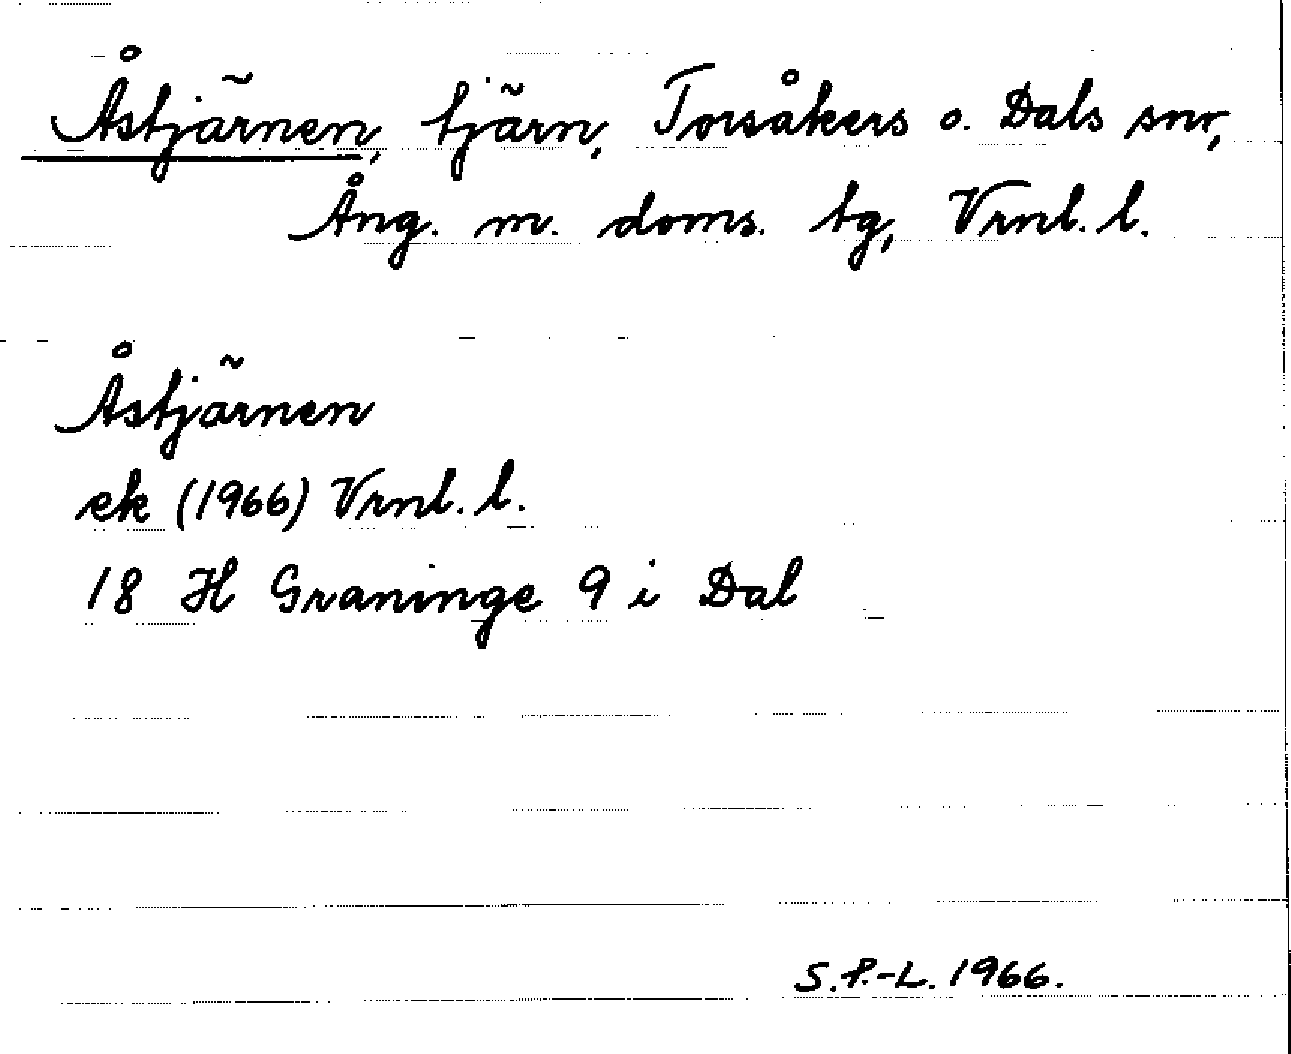 Åstjärnen, tjärn, Torsåkers o. Dals snr,
Ång. m. doms. tg, Vrnl. l.
Åstjärnen
ek (1966) Vrnl. l.
18 H Graninge 9 i Dal
S.P.-L. 1966.